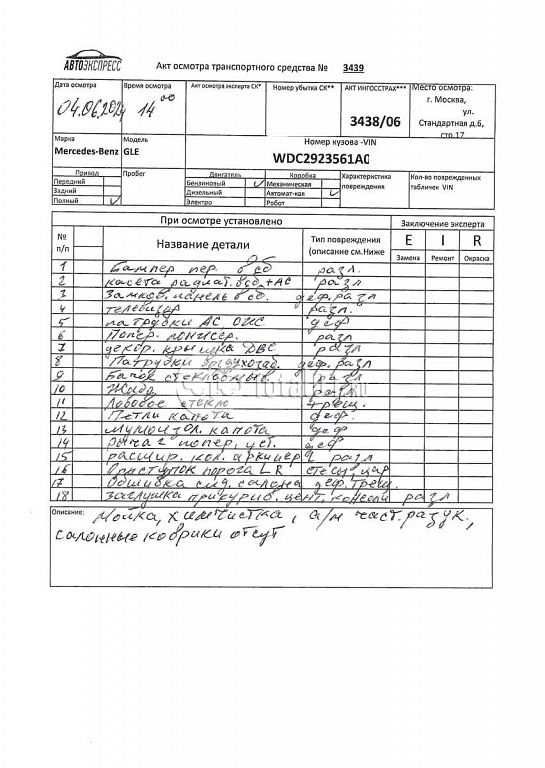 АВТОЭКСПРЕСС
Акт осмотра транспортного средства № 3439
Дата осмотра Время осмотра Акт осмотра эксперта СК* Номер убытка СК** АКТ ИНГОССТРАХ*** Место осмотра:
04.06.2024 14 00 3438/06 г. Москва,
ул.
Стандартная д.6,
стр.17
Марка Модель Номер кузова -VIN
Mercedes-Benz GLE WDC2923561A0
Привод Пробег Двигатель Коробка Характеристика повреждения Кол-во поврежденных табличек VIN
Передний Бензиновый Механическая
Задний Дизельный Автомат-кая
Полный Электро Робот
При осмотре установлено Заключение эксперта
№ п/п Название детали Тип повреждения (описание см.Ниже E I R
Замена Ремонт Окраска
1 Бампер пер. в сб разл.
2 касета радиат. в сб. +АС разл
3 Замков. панель в сб. деф. разл
4 телевизор разл.
5 патрубки АС ОЖС деф
6 Попер. лонжер. разл
7 декор. крышка ДВС разл
8 Патрубки воздухозаб. деф. разл
9 Бачок стеклоомыв. разл
10 разл
11 Лобовое стекло трещ.
12 Петли капота деф.
13 шумоизол. капота деф
14 рычаг попер. уст. деф
15 расшир. кол. арки пер L разл
16 порога L R цар
17 Обшивка салона деф. трещ.
18 Заглушка прикурив. цент. консоли разл
Описание: Мойка, химчистка, а/м част. разук.,
салонные коврики отсут